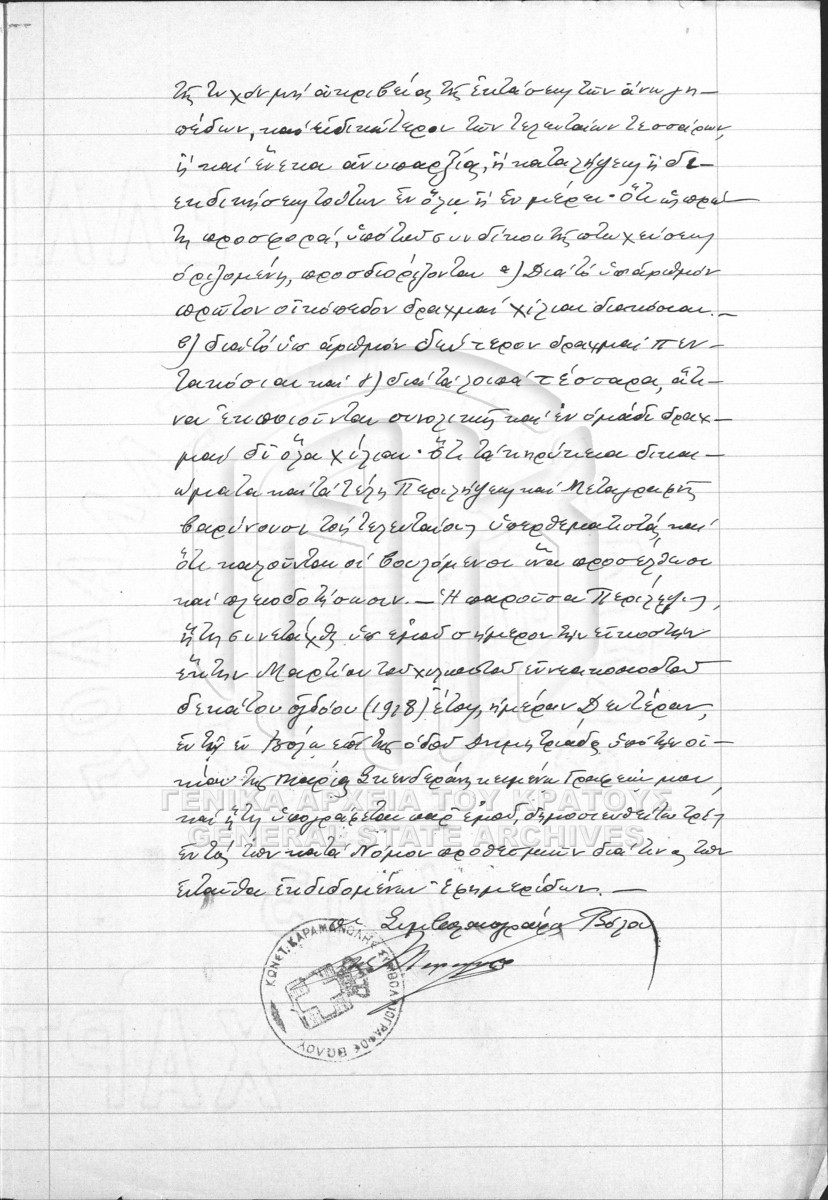 τῆς τυχὸν μὴ ἀκριβείας τῆς ἐκτάσεως τῶν ἄνω γη-
πέδων, καὶ εἰδικώτερον τῶν τελευταίων τεσσάρων,
ἢ καὶ ἕνεκα ἀνυπαρξίας, ἢ καταλήψεως ἢ δι-
εκδικήσεως τούτων ἐν ὅλῳ ἢ ἐν μέρει· ὅτι ὡς πρώ-
τη προσφορά, ὑπὸ τοῦ συνδίκου τῆς πτωχεύσεως
ὁριζομένη, προσδιορίζονται α) Διὰ τὸ ὑπ' ἀριθμὸν
πρῶτον οἰκόπεδον δραχμαὶ χίλιαι διακόσιαι.—
β) διὰ τὸ ὑπ' ἀριθμὸν δεύτερον δραχμαὶ πεν-
τακόσιαι καὶ γ) διὰ τὰ λοιπὰ τέσσαρα, ἅτι-
να ἐκποιοῦνται συνολικῶς καὶ ἐν ὁμάδι δραχ-
μαὶ δι' ὅλα χίλιαι· Ὅτι τὰ κηρύκεια δικαι-
ώματα καὶ τὰ τέλη Περιλήψεως καὶ Μεταγραφῆς
βαρύνουσι τοὺς τελευταίους ὑπερθεματιστὰς καὶ
ὅτι καλοῦνται οἱ βουλόμενοι ἵνα προσέλθωσι
καὶ πλειοδοτήσωσιν.— Ἡ παροῦσα Περίληψις,
ἥτις συνετάχθη ὑπ' ἐμοῦ σήμερον τὴν εἰκοστὴν
ἕκτην Μαρτίου τοῦ χιλιοστοῦ ἐννεακοσιοστοῦ
δεκάτου ὀγδόου (1918) ἔτους, ἡμέραν Δευτέραν,
ἐν τῷ ἐν Βόλῳ ἐπὶ τῆς ὁδοῦ Δημητριάδος ὑπὸ τὴν οἰ-
κίαν τῆς Μαρίας Σκενδεράνη κειμένῳ Γραφείῳ μου,
καὶ ἥτις ὑπογράφεται παρ' ἐμοῦ, δημοσιευθήτω τρὶς
ἐντὸς τῶν κατὰ Νόμον προθεσμιῶν διά τινος τῶν
ἐνταῦθα ἐκδιδομένων Ἐφημερίδων.—
Ὁ Συμβολαιογράφος Βόλου
ΚΩΝΣΤ. ΚΑΡΑΜΑΝΩΛΗΣ ΣΥΜΒΟΛΑΙΟΓΡΑΦΟΣ ΒΩΛΟΥ
ΓΕΝΙΚΑ ΑΡΧΕΙΑ ΤΟΥ ΚΡΑΤΟΥΣ
GENERAL STATE ARCHIVES